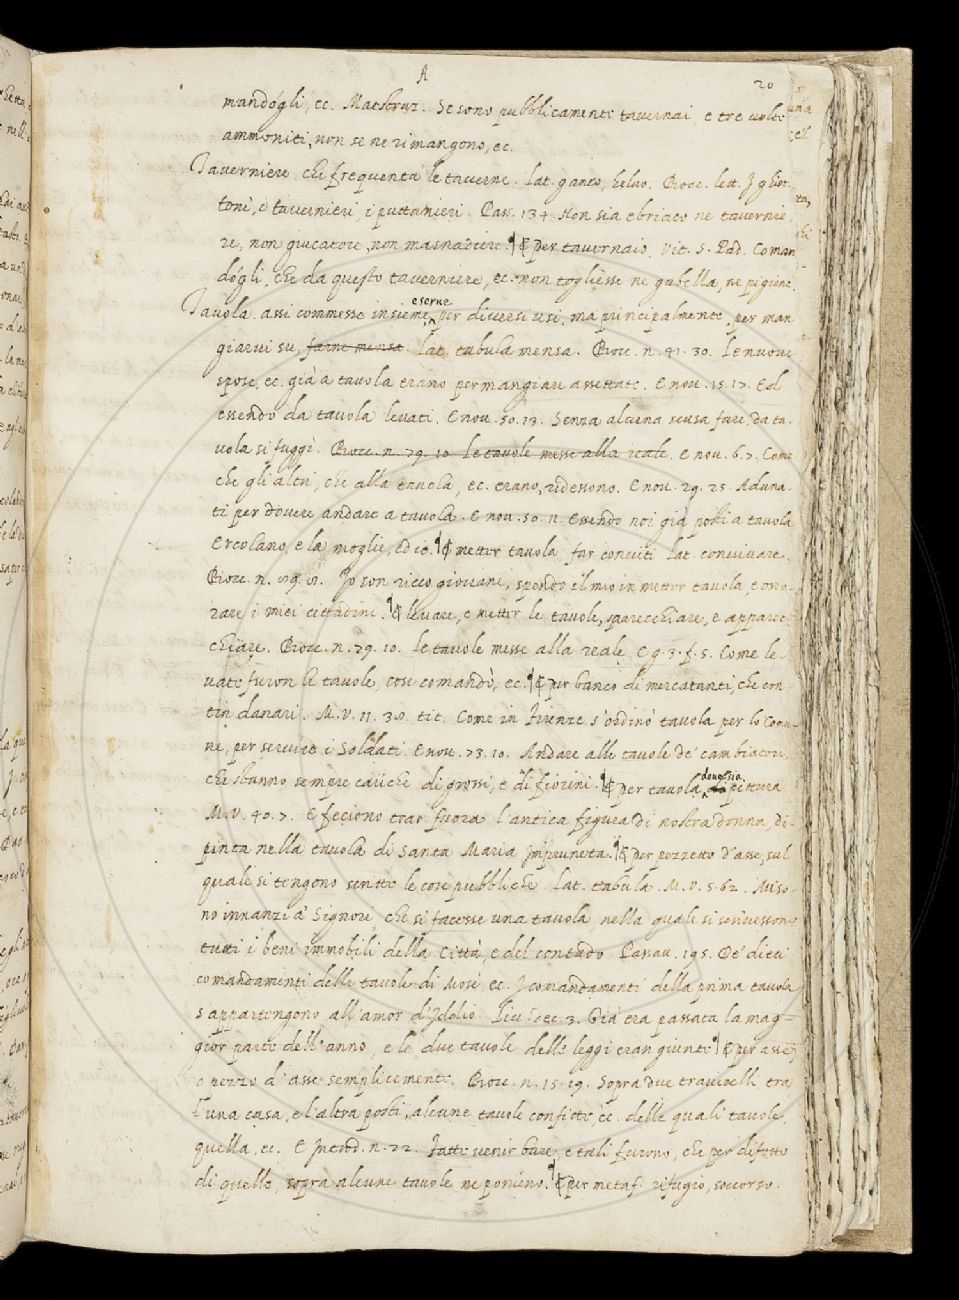 A
20
mandógli, ec. Maestruz. Se sono pubblicamente tavernai, e tre volte
ammoniti, non se ne rimangono, ec.
Taverniere che frequenta le taverne. Lat. ganeo, helus. Bocc. lett. I ghiot
toni, i tavernieri, i puttanieri. Pass. 134. Non sia ebriaco ne tavernie
re, non giucatore, non masnadiere. ¶ E per tavernaio. Vit. S. Pad. Coman
dógli, che da questo taverniere, ec. non togliesse ne gabella, ne pigione.
Tavola. assi commesse insieme eserne per diversi usi, ma principalmente per man
giarvi su, farne mensa. Lat. tabula mensa. Bocc. n. 41. 30. Le nuove
spose, ec. già a tavola erano per mangiare assettate. E nov. 15. 17. Ed
essendo da tavola levati. E nov. 50. 13. Senza alcuna scusa fare, da ta
vola si fuggì. Bocc. n. 79. 10. Le tavole messe alla reale. E nov. 6. 7. Come
che gli altri, che alla tavola, ec. erano, ridessono. E nov. 29. 25. Aduna
ti per dovere andare a tavola. E nov. 50. 11. Essendo noi già posti a tavola
Ercolano, e la moglie, ed io. ¶ E metter tavola far conviti Lat. convivare.
Bocc. n. Io son ricco giovane, spendo il mio in metter tavola, e ono
rare i miei cittadini. ¶ E levare, e metter le tavole, sparecchiare, e apparec
chiare. Bocc. n. 79. 10. Le tavole messe alla reale. E g. 3. f. 5. Come le
vate furon le tavole, così comandò, ec. ¶ E per banco di mercatanti, che con
tin danari. M. V. 11. 38. tit. Come in Firenze s'ordinò tavola per lo Comu
ne, per servire i Soldati. E nov. 73. 10. Andare alle tavole de' cambiatori,
che stanno sempre cariche di grossi, e di fiorini. ¶ E per tavola, dove sia pittura
M. V. 40. 7. E feciono trar fuora l'antica figura di nostra donna, di
pinta nella tavola di Santa Maria Impruneta. ¶ E per pezzetto d'asse, sul
quale si tengono scritte le cose pubbliche. Lat. tabula. M. V. 5. 62. Miso
no innanzi a' Signori, che si facesse una tavola, nella quale si scrivessono
tutti i beni immobili della Città, e del contado. Passav. 195. De' dieci
comandamenti delle tavole di Mosè, ec. I comandamenti della prima tavola
s'appartengono all'amor d'Iddio. Liv. dec. 3. Già era passata la mag=
gior parte dell'anno, e le due tavole delle leggi eran giunte ¶ E per asse,
o pezzo d'asse semplicemente. Bocc. n. 15. 19. Sopra due travicelli tra
l'una casa, e l'altra posti, alcune tavole confitte, ec. delle quali tavole
quella, ec. E Introd. n. 22. Fatte venir bare, e tali furono, che per difetto
di quelle, sopra alcune tavole ne ponieno. ¶ E per metaf. rifugio, soccorso.